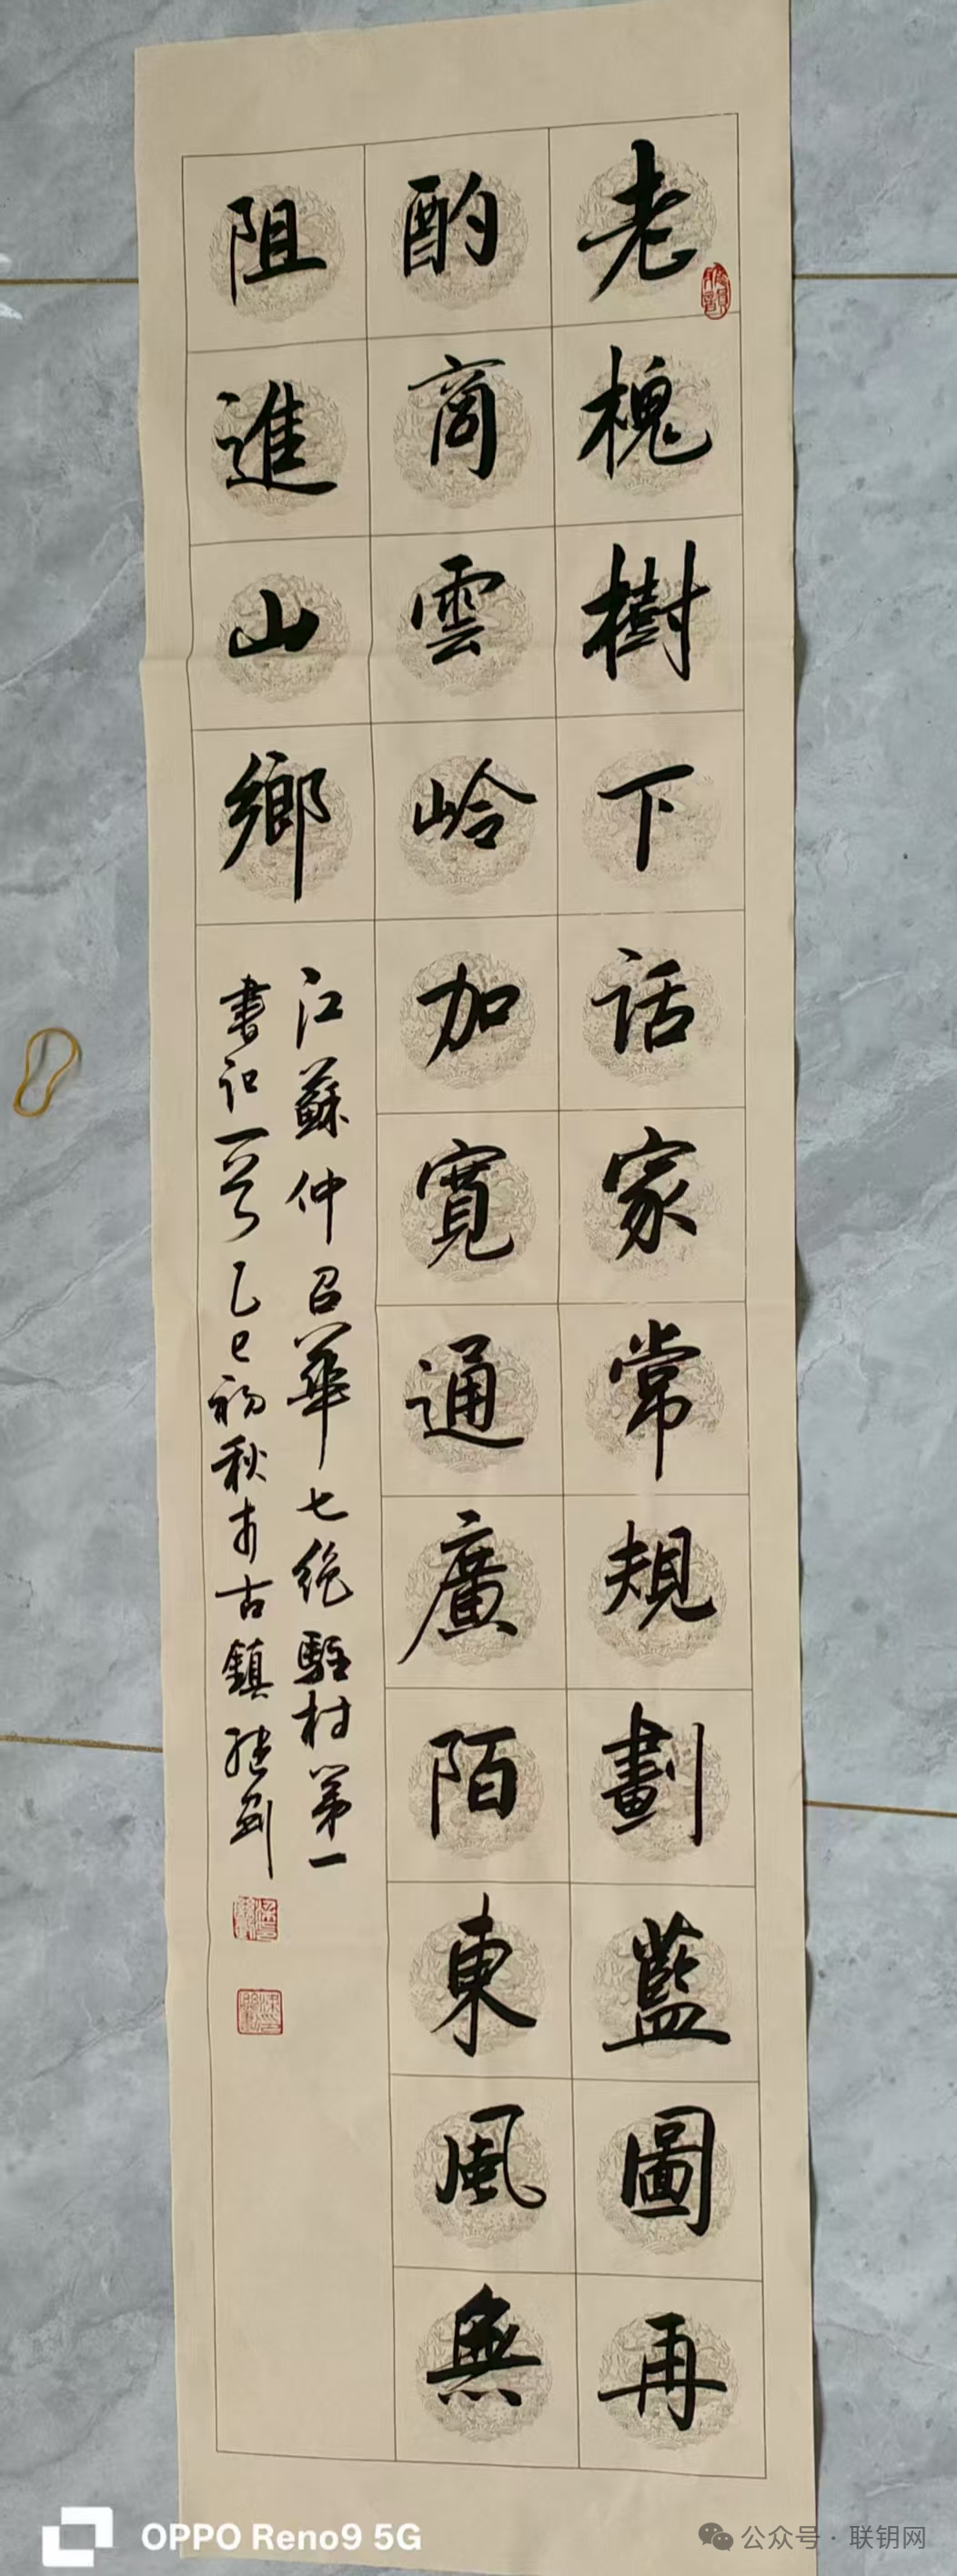 老槐樹下話家常規劃藍圖再
酌商雲岭加寬通廣陌東風無
阻進山鄉
江蘇仲召華七绝駐村第一
書记一首乙巳初秋于古鎮
OPPO Reno9 5G
公众号 · 联钥网